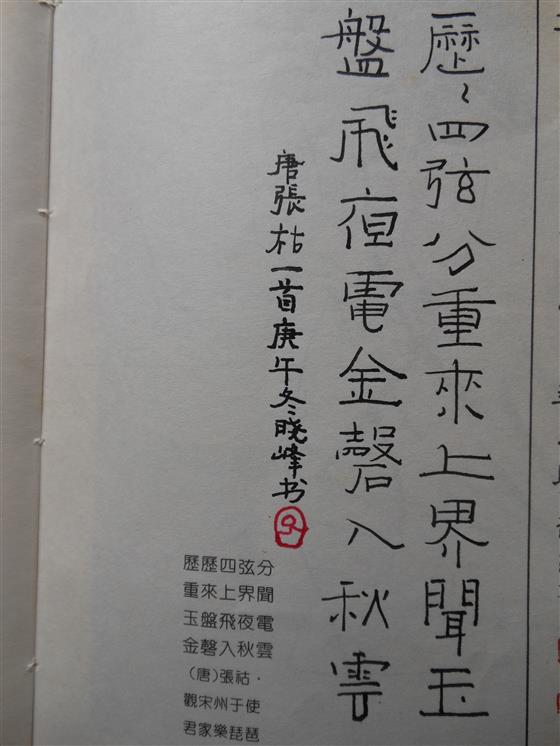 歷〻四弦分重來上界聞玉
盤飛夜電金磬入秋雲
唐張祜一首庚午冬曉峰书
歷歷四弦分
重來上界聞
玉盤飛夜電
金磬入秋雲
(唐)張祜·
觀宋州于使
君家樂琵琶